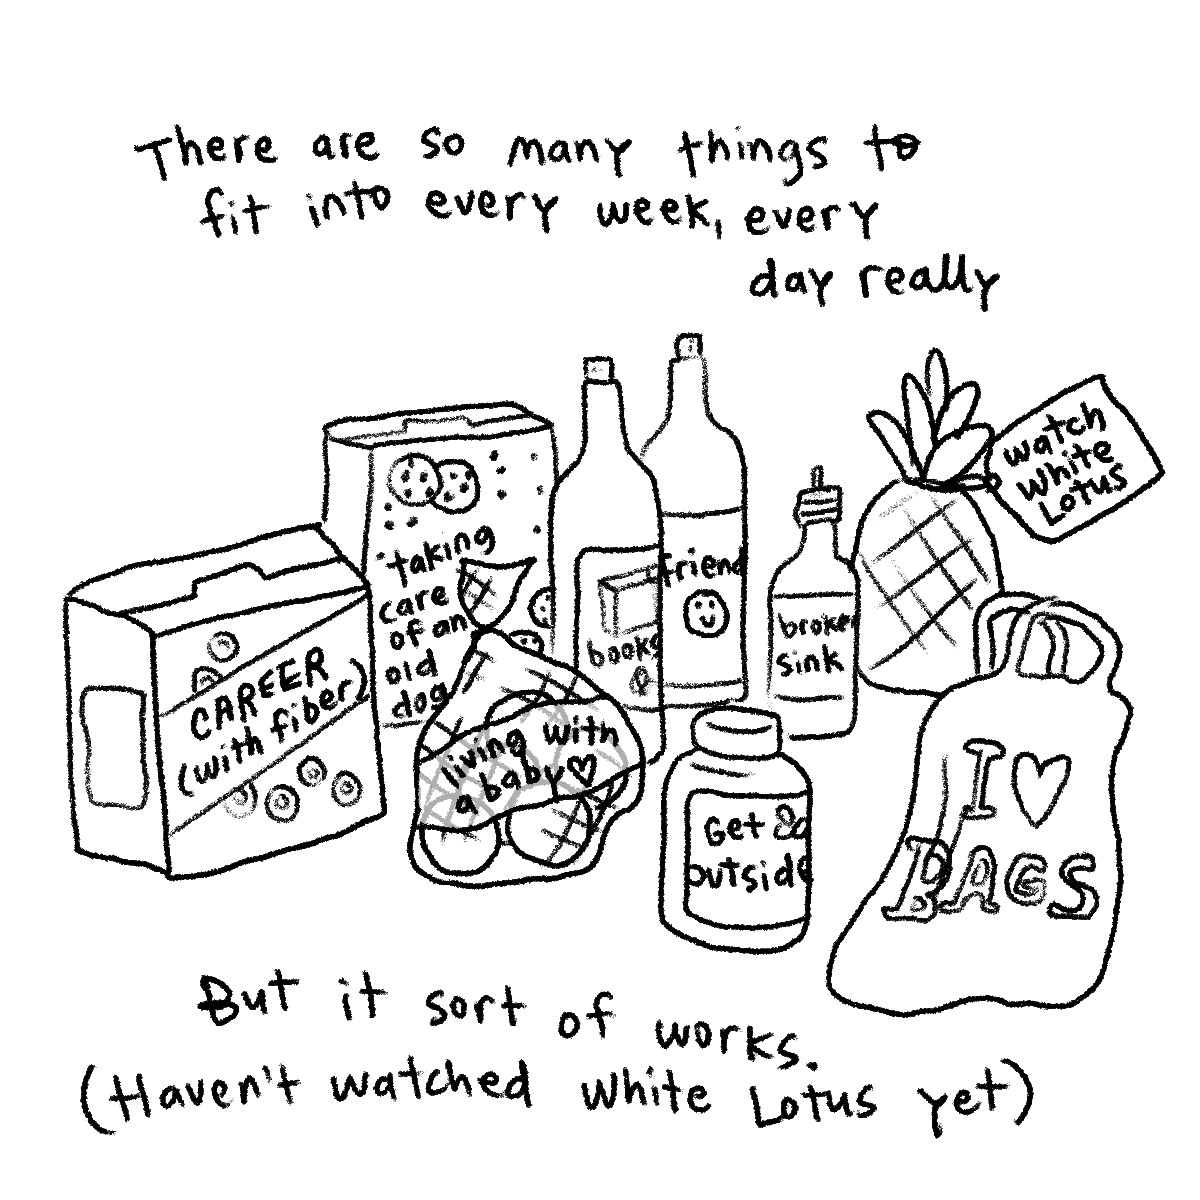 There are so many things to
fit into every week, every
day really
watch
White
Lotus
taking
care
of an
old
dog
friend
books
broken
sink
CAREER
(with fiber)
living with
a baby♡
Get
outside
I ♡
BAGS
But it sort of works.
(Haven't watched White Lotus yet)